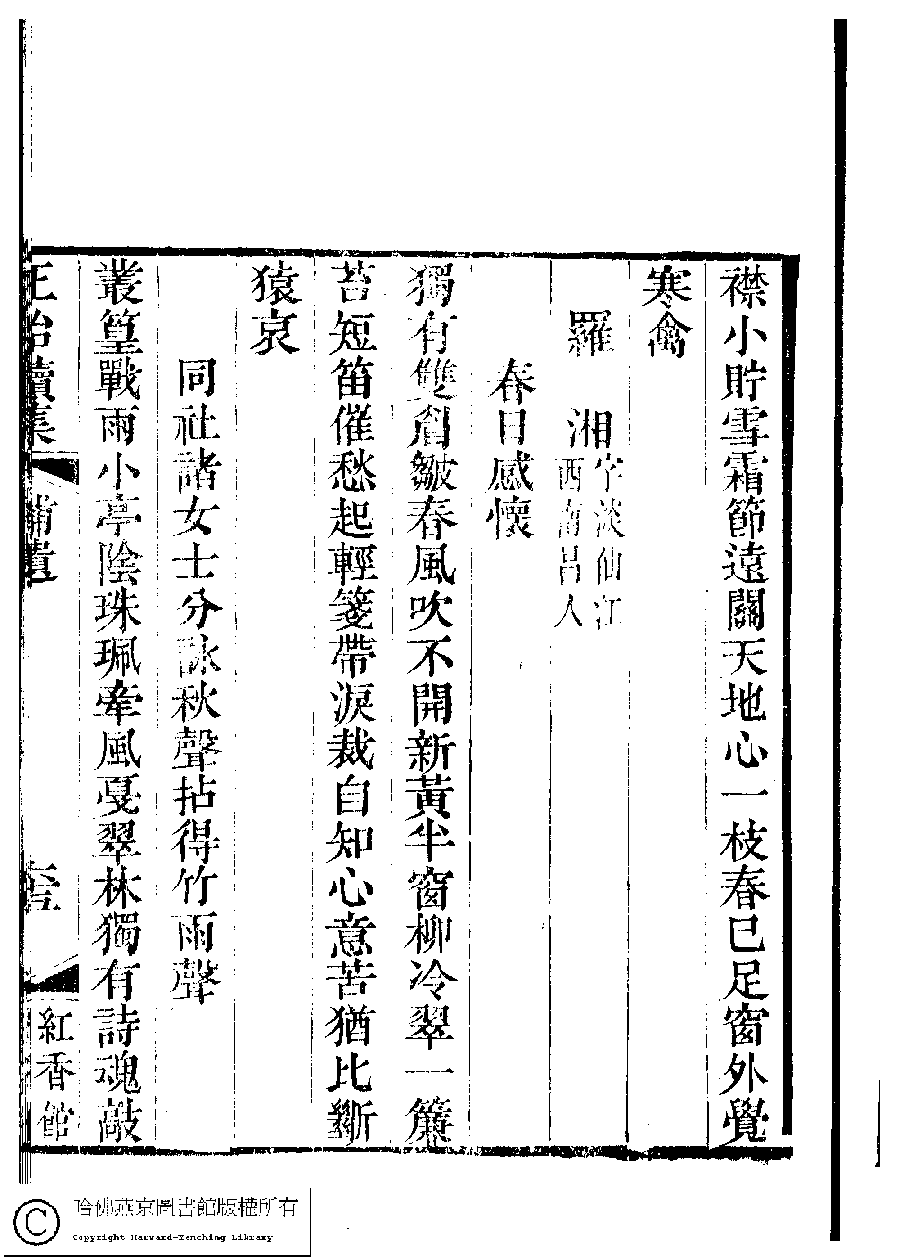 襟小貯雪霜節遠關天地心一枝春已足窗外覺
寒禽
羅湘字淡仙江西南昌人
春日感懷
獨有雙眉皺春風吹不開新黃半窗柳冷翠一簾
苔短笛催愁起輕箋帶淚裁自知心意苦猶比斷
猿哀
同社諸女士分詠秋聲拈得竹雨聲
叢篁戰雨小亭陰珠珮牽風戛翠林獨有詩魂敲
王台續集
補遺
紅香館
哈佛燕京圖書館版權所有
Copyright Harvard-Yenching Library